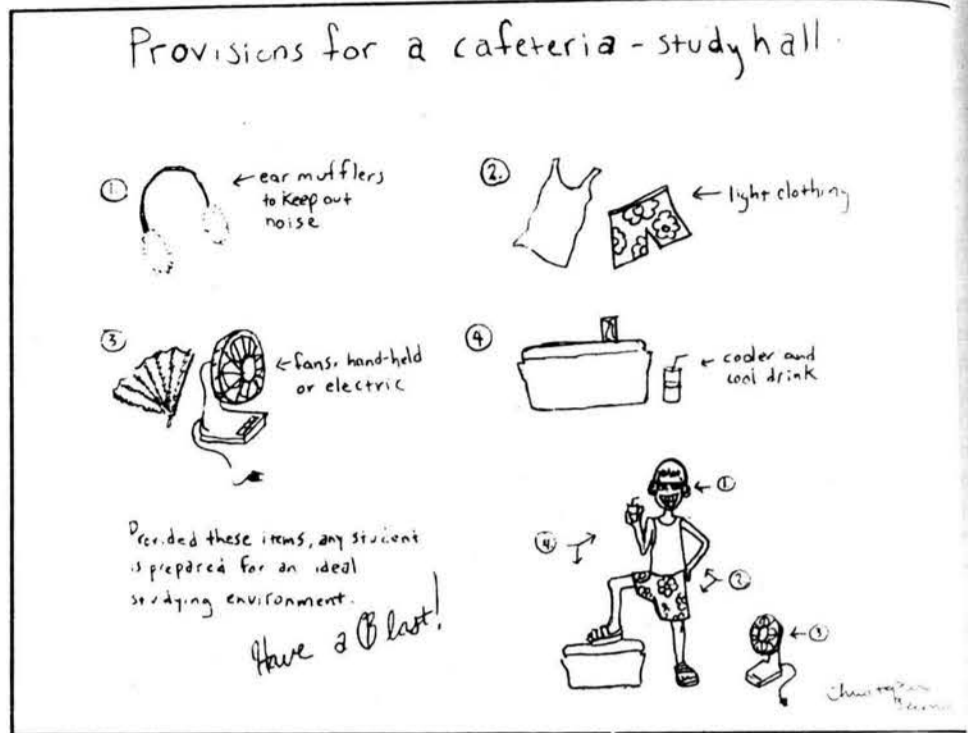 Provisions for a cafeteria - study hall.
1.
ear mufflers
to keep out
noise
2.
light clothing
3
fans, hand-held
or electric
4
cooler and
cool drink
Provided these items, any student
is prepared for an ideal
studying environment.
Have a Blast!
1
4
2
3